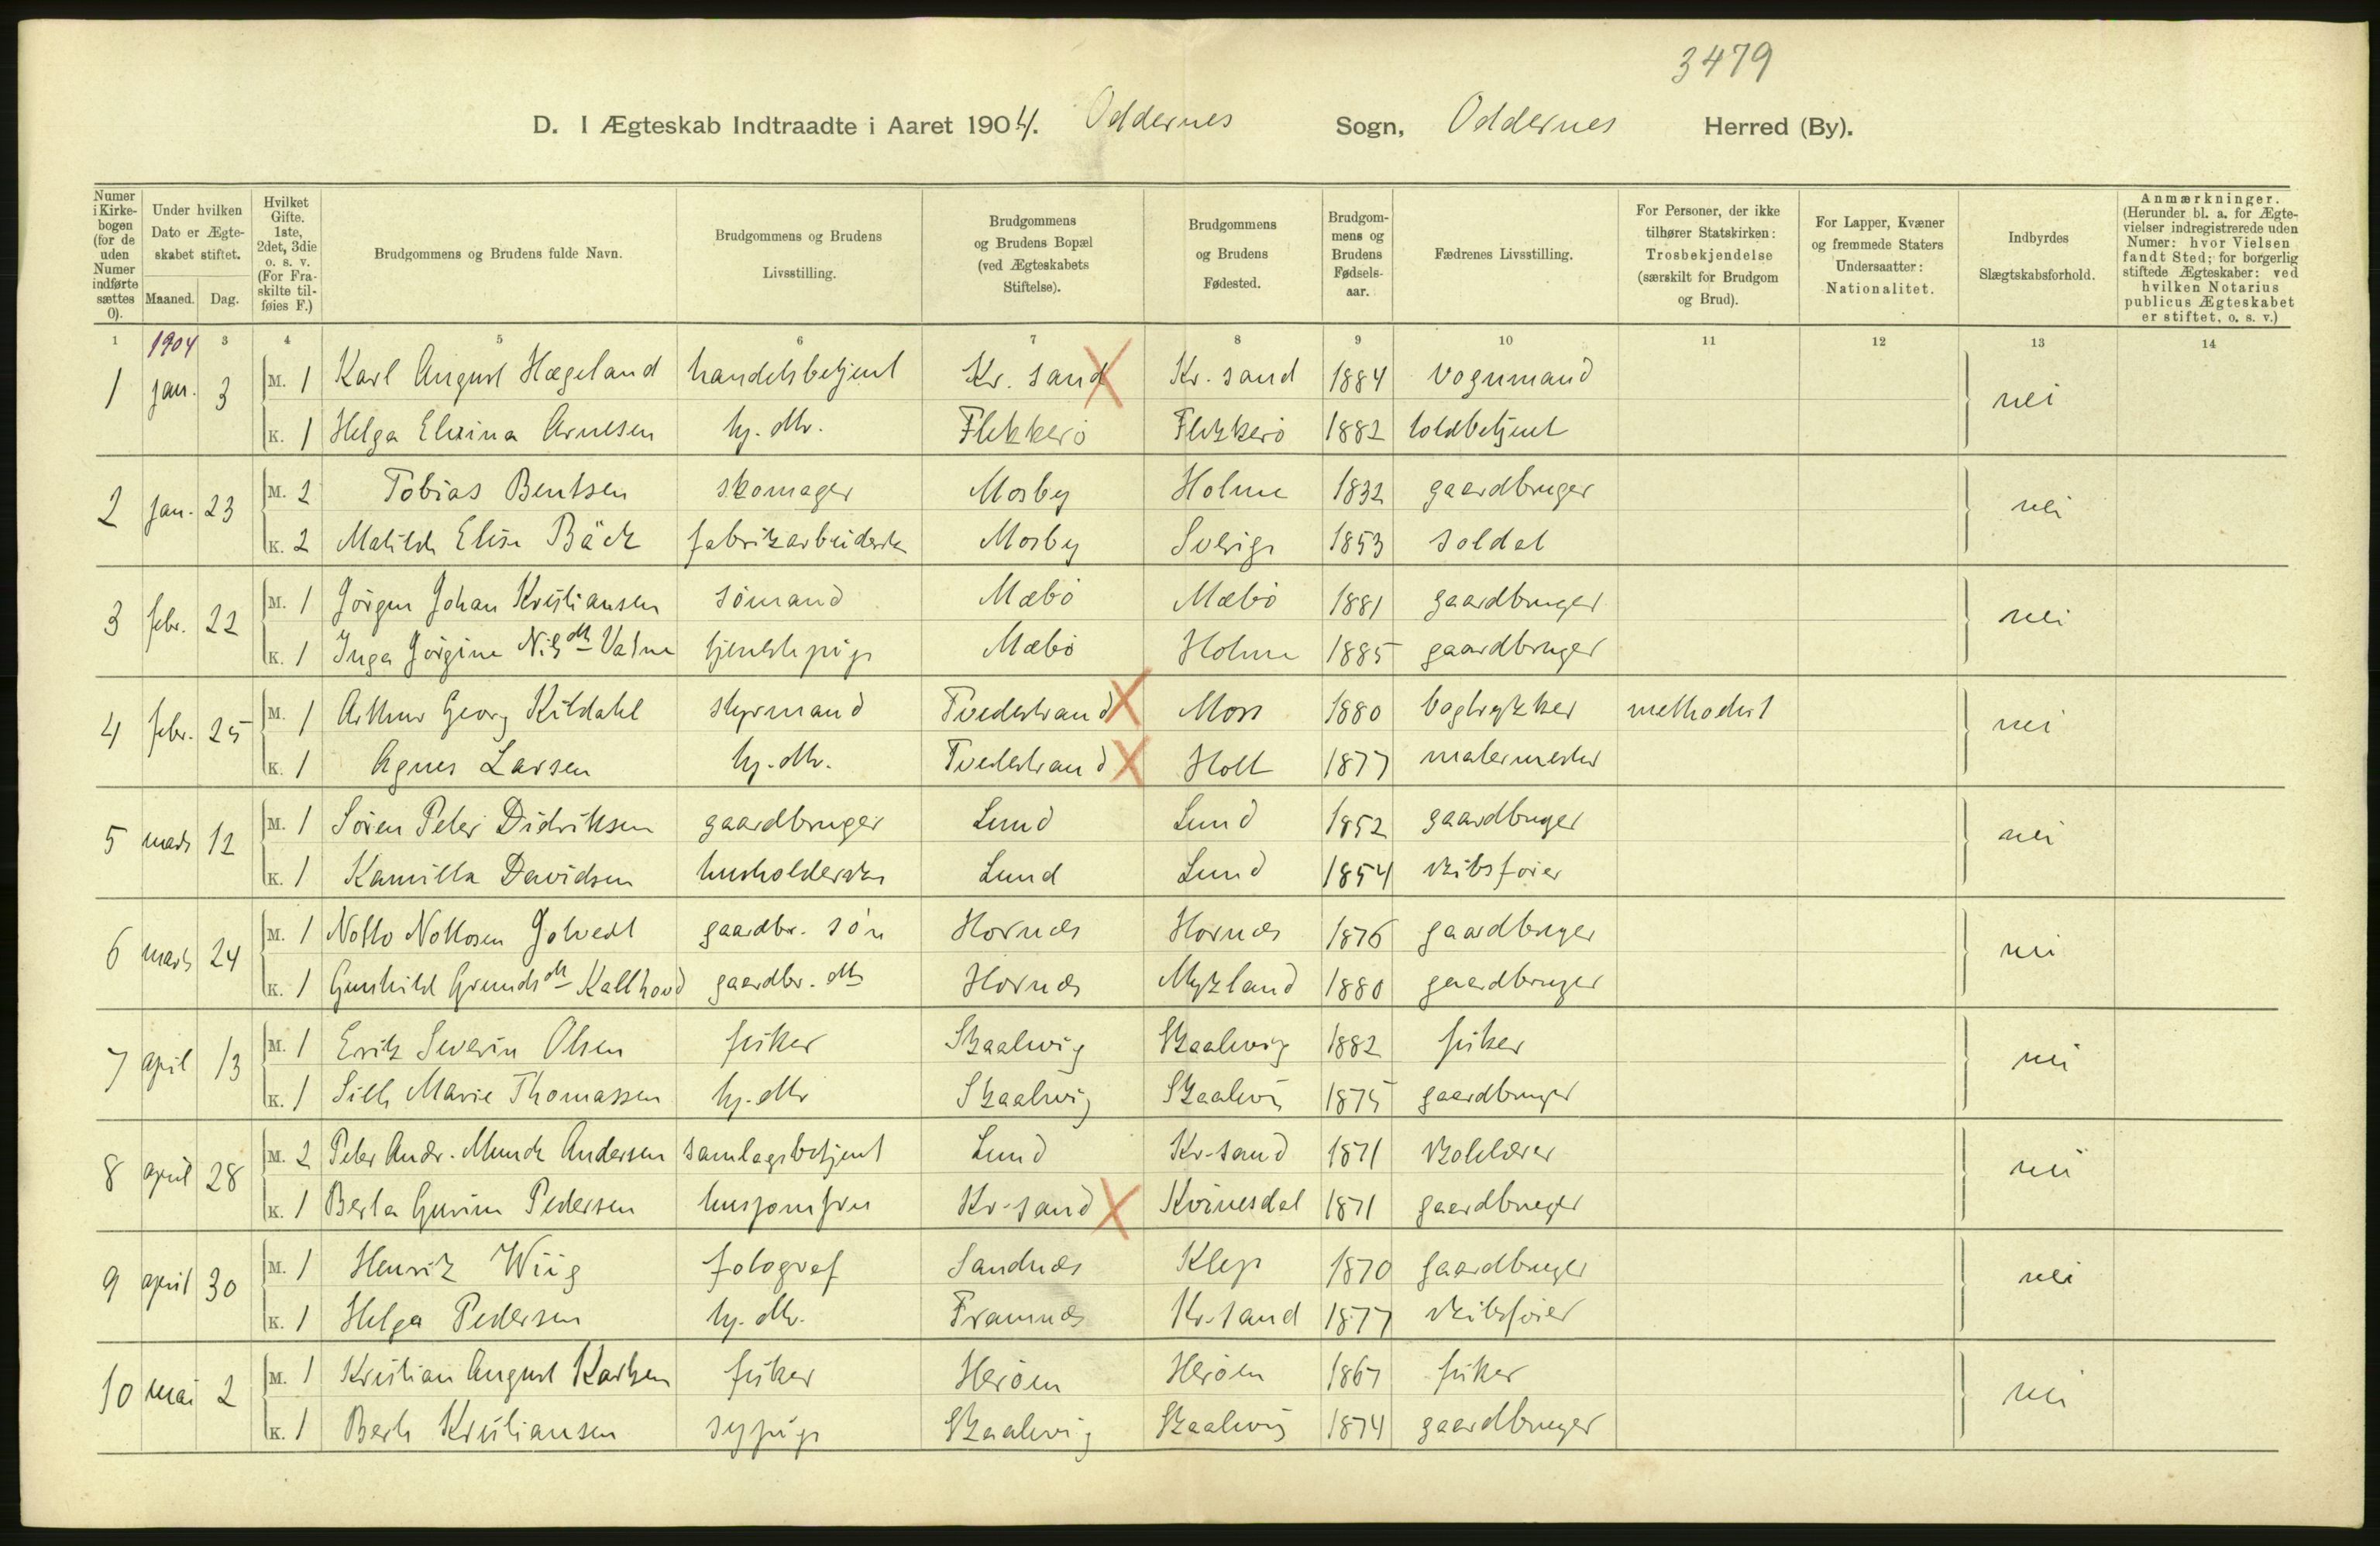 3479
D. I Ægteskab Indtraadte i Aaret 1904. Oddernes Sogn, Oddernes Herred (By).
Numer i Kirkebogen (for de uden Numer indførte sættes 0).
Under hvilken Dato er Ægteskabet stiftet.
Maaned. Dag.
Hvilket Gifte. 1ste, 2det, 3die o. s. v. (For Fraskilte tilføies F.)
Brudgommens og Brudens fulde Navn.
Brudgommens og Brudens Livsstilling.
Brudgommens og Brudens Bopæl (ved Ægteskabets Stiftelse).
Brudgommens og Brudens Fødested.
Brudgommens og Brudens Fødselsaar.
Fædrenes Livsstilling.
For Personer, der ikke tilhører Statskirken: Trosbekjendelse (særskilt for Brudgom og Brud).
For Lapper, Kvæner og fremmede Staters Undersaatter: Nationalitet.
Indbyrdes Slægtskabsforhold.
Anmærkninger. (Herunder bl. a. for Ægtevielser indregistrerede uden Numer: hvor Vielsen fandt Sted; for borgerlig stiftede Ægteskaber: ved hvilken Notarius publicus Ægteskabet er stiftet, o. s. v.)
1 1904 3 4 5 6 7 8 9 10 11 12 13 14
1 jan. 3 M. 1 Karl August Hægeland handelsbetjent Kr. sand Kr. sand 1884 vognmand nei
K. 1 Helga Elvina Arnesen hj. dtr. Flekkerö Flekkerö 1882 toldbetjent
2 jan. 23 M. 2 Tobias Bentsen skomager Mosby Holme 1832 gaardbruger nei
K. 2 Matilde Elise Bäck fabrikarbeiderske Mosby Sverige 1853 soldat
3 febr. 22 M. 1 Jörgen Johan Kristiansen sömand Mæbö Mæbö 1881 gaardbruger nei
K. 1 Inga Jörgine Nilsdtr Vatne tjenestepige Mæbö Holme 1885 gaardbruger
4 febr. 25 M. 1 Arthur Georg Kildahl styrmand Tvedestrand Moss 1880 bogtrykker methodist nei
K. 1 Agnes Larsen hj. dtr. Tvedestrand Holt 1877 malermester
5 marts 12 M. 1 Sören Peter Didriksen gaardbruger Lund Lund 1852 gaardbruger nei
K. 1 Kamilla Davidsen husholderske Lund Lund 1854 skibsförer
6 marts 24 M. 1 Notto Nottosen gaardbr. sön Hornæs Hornæs 1876 gaardbruger nei
K. 1 Gunhild dtr Kallhovd gaardbr. dtr Hornæs Mykland 1880 gaardbruger
7 april 13 M. 1 Erik Severin Olsen fisker Skaalevig Skaalevig 1882 fisker nei
K. 1 Sille Marie Thomassen hj. dtr Skaalevig Skaalevig 1875 gaardbruger
8 april 28 M. 2 Peter Andr. Munch Andersen samlagsbetjent Lund Kr. sand 1871 skolelærer nei
K. 1 Berta Gurine Pedersen husjomfru Kr. sand Kvinesdal 1871 gaardbruger
9 april 30 M. 1 Henrik Wiig fotograf Sandnæs Klep 1870 gaardbruger nei
K. 1 Helga Pedersen hj. dtr. Framnæs Kr. sand 1877 skibsförer
10 mai 2 M. 1 Kristian August Karlsen fisker Heröen Heröen 1867 fisker nei
K. 1 Berte Kristiansen sypige Skaalevig Skaalevig 1874 gaardbruger